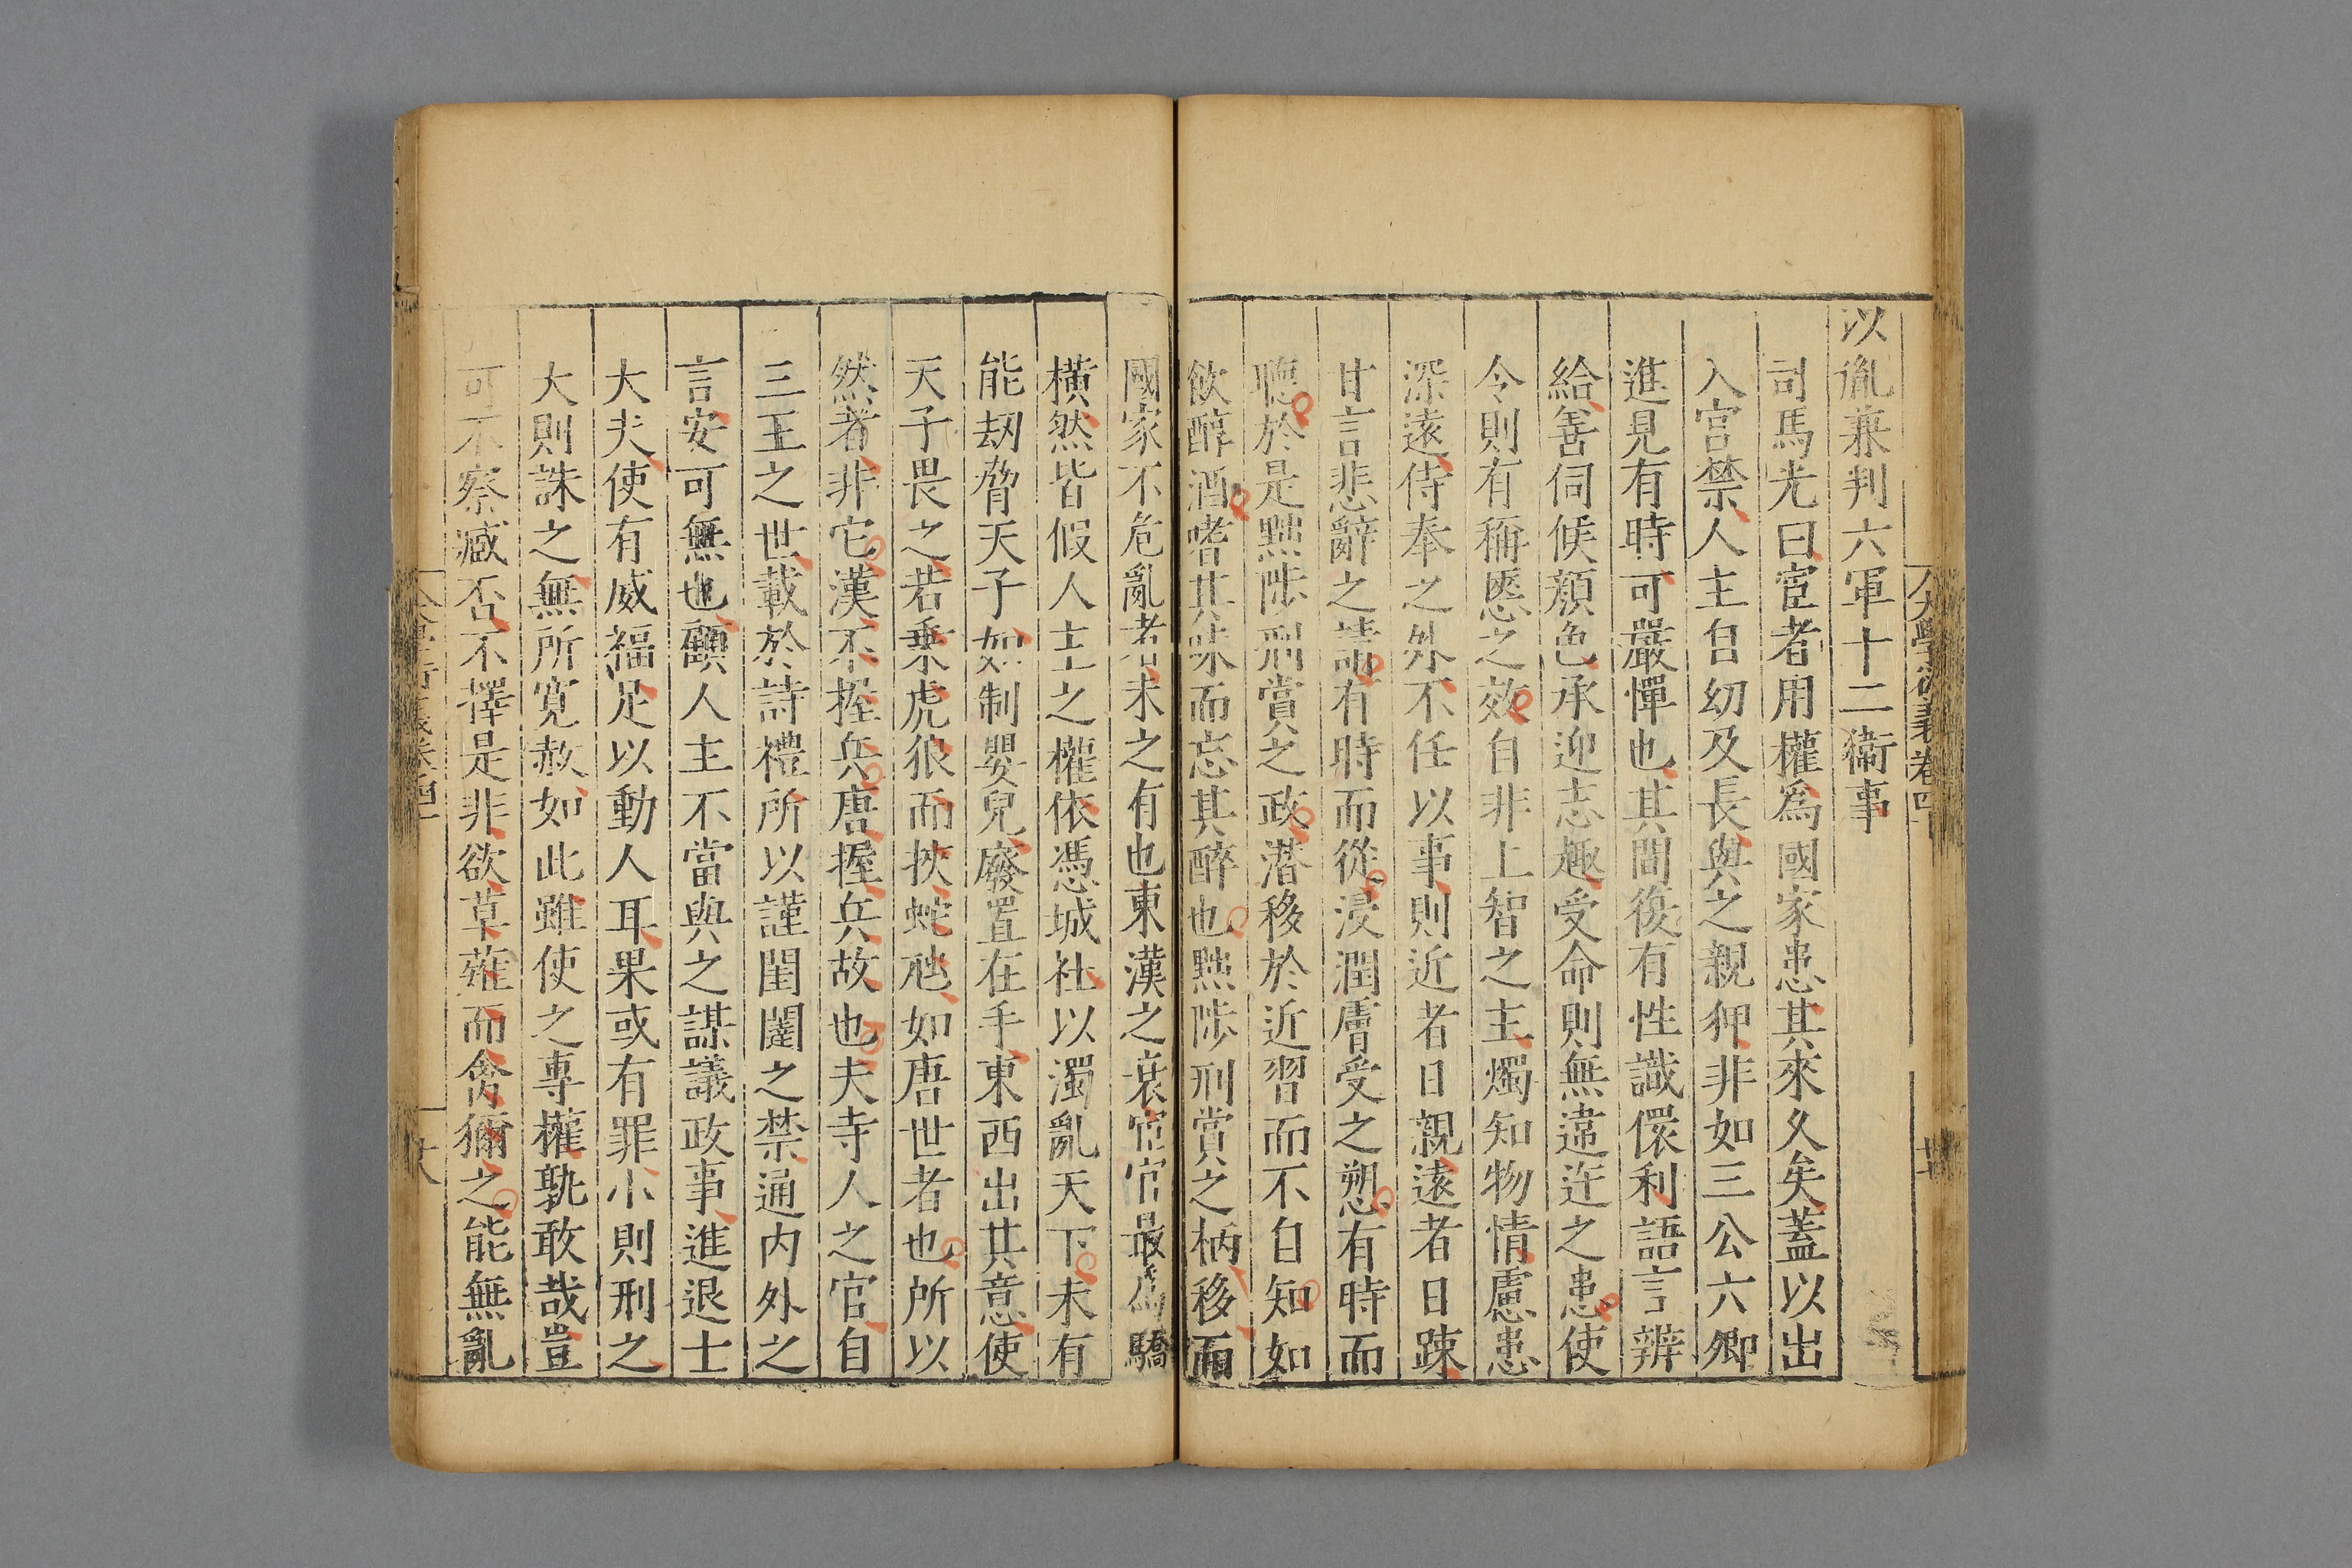 以胤兼判六軍十二衞事
司馬光曰宦者用權爲國家患其來久矣蓋以出
入宫禁人主自幼及長與之親狎非如三公六卿
進見有時可嚴憚也其間復有性識儇利語言辨
給善伺候顔色承迎志趣受命則無違迕之患使
令則有稱愜之效自非上智之主燭知物情慮患
深遠侍奉之外不任以事則近者日親遠者日踈
甘言悲辭之請有時而從浸潤膚受之愬有時而
聽於是黜陟刑賞之政潜移於近習而不自知如
飲醇酒嗜其味而忘其醉也黜陟刑賞之柄移而
國家不危亂者未之有也東漢之衰宦官最爲驕
横然皆假人主之權依憑城社以濁亂天下未有
能刼脅天子如制嬰兒廢置在手東西出其意使
天子畏之若乗虎狼而挾蛇虺如唐世者也所以
然者非它漢不握兵唐握兵故也夫寺人之官自
三王之世載於詩禮所以謹閨闥之禁通内外之
言安可無也顧人主不當與之謀議政事進退士
大夫使有威福足以動人耳果或有罪小則刑之
大則誅之無所寛赦如此雖使之專權孰敢哉豈
可不察臧否不擇是非欲草薙而禽獮之能無亂